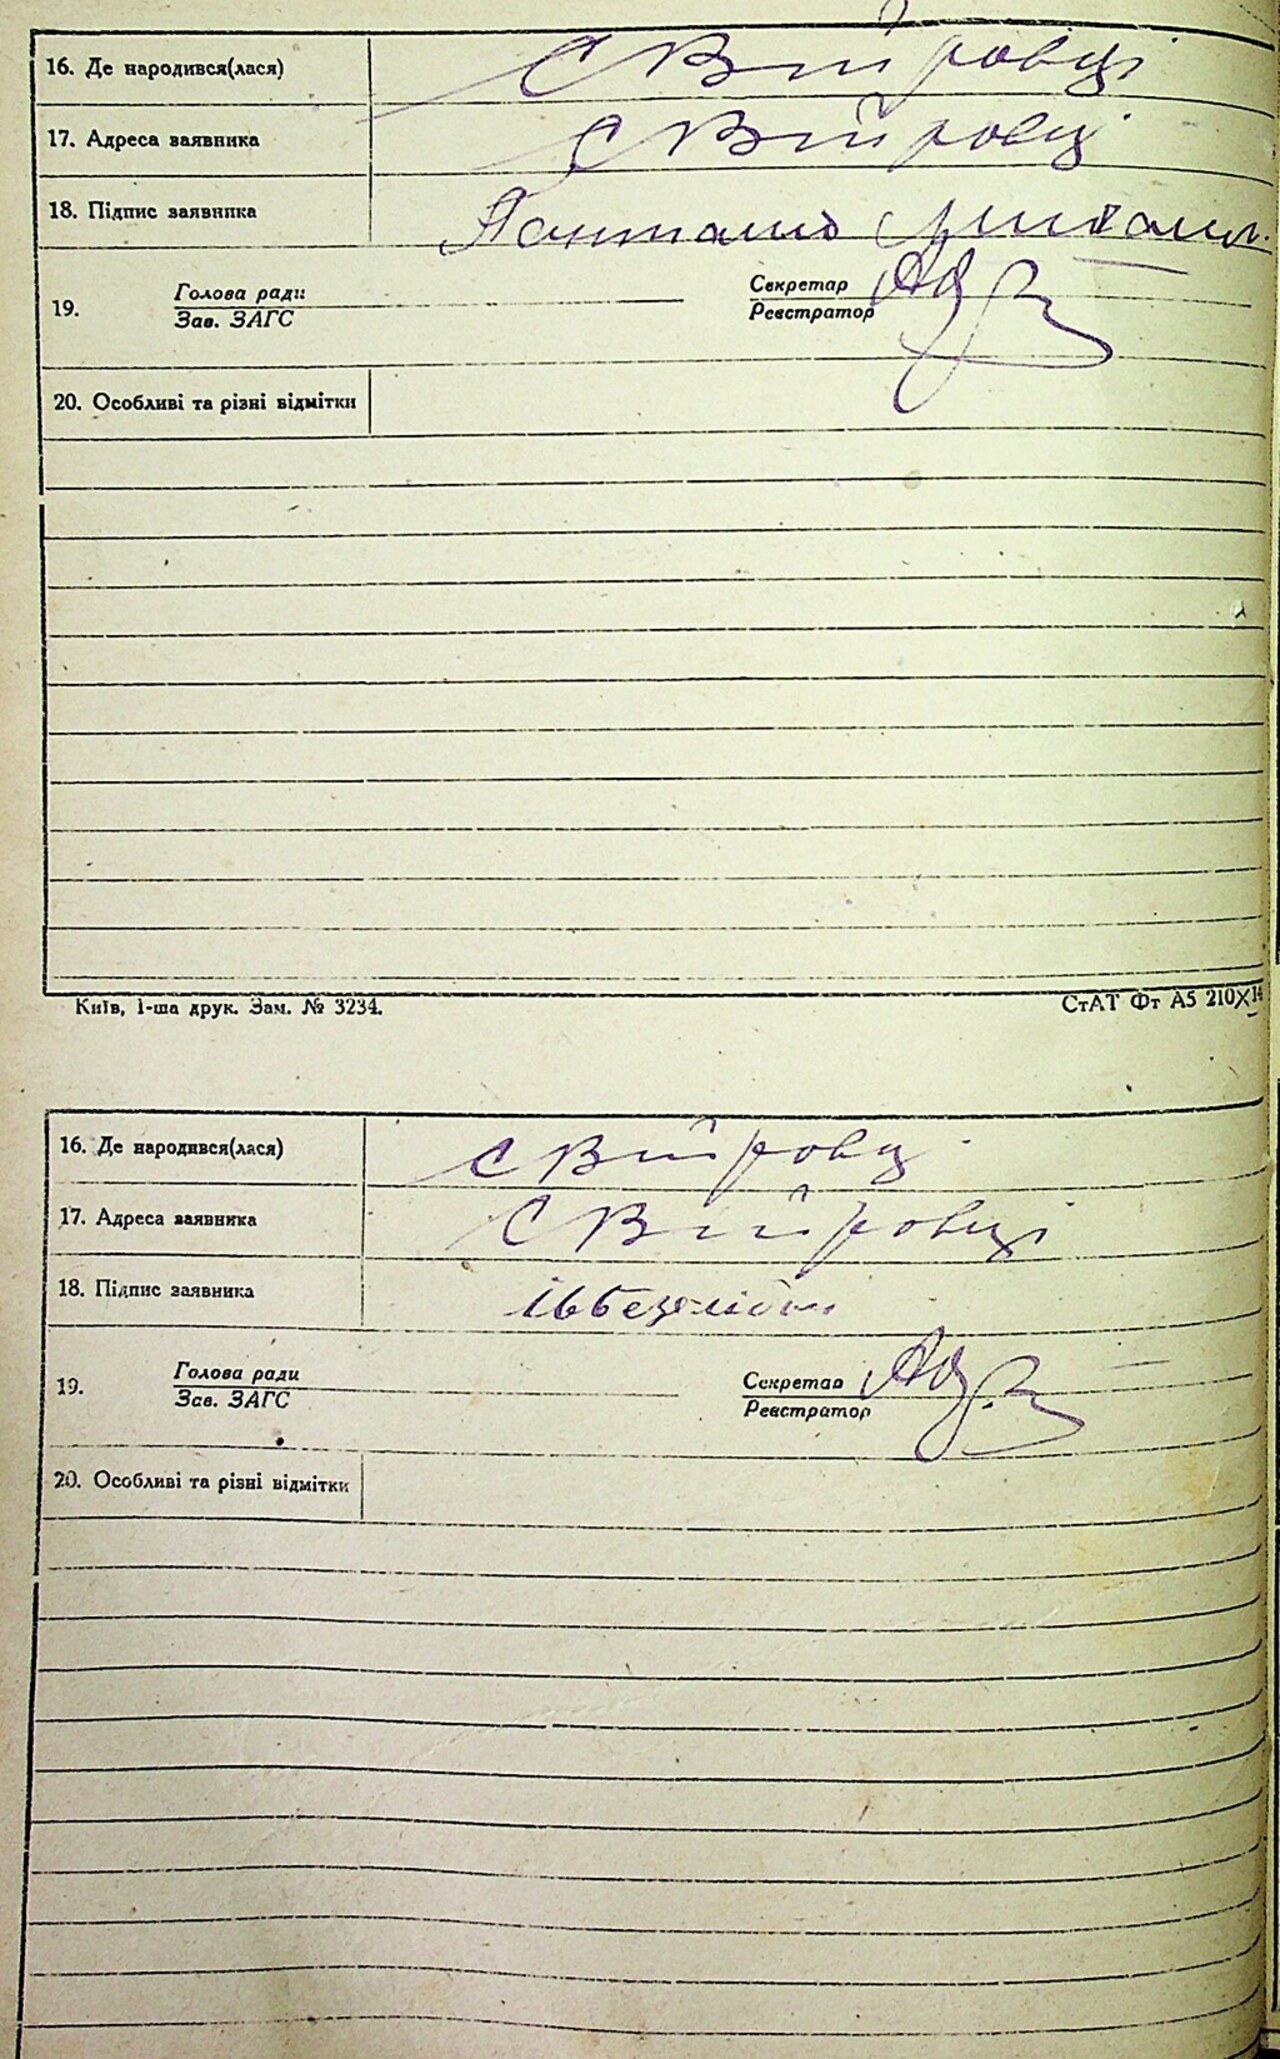 16. Де народився(лася) С Війтровці
17. Адреса заявника С Війтровці
18. Підпис заявника
Голова ради Секретар
19.
Зав. ЗАГС Реєстратор
20. Особливі та різні відмітки
Київ, 1-ша друк. Зам. № 3234. СтАТ Фт А5 210X14
16. Де народився(лася) С Війтровці
17. Адреса заявника С Війтровці
18. Підпис заявника
Голова ради Секретар
19.
Зав. ЗАГС Реєстратор
20. Особливі та різні відмітки